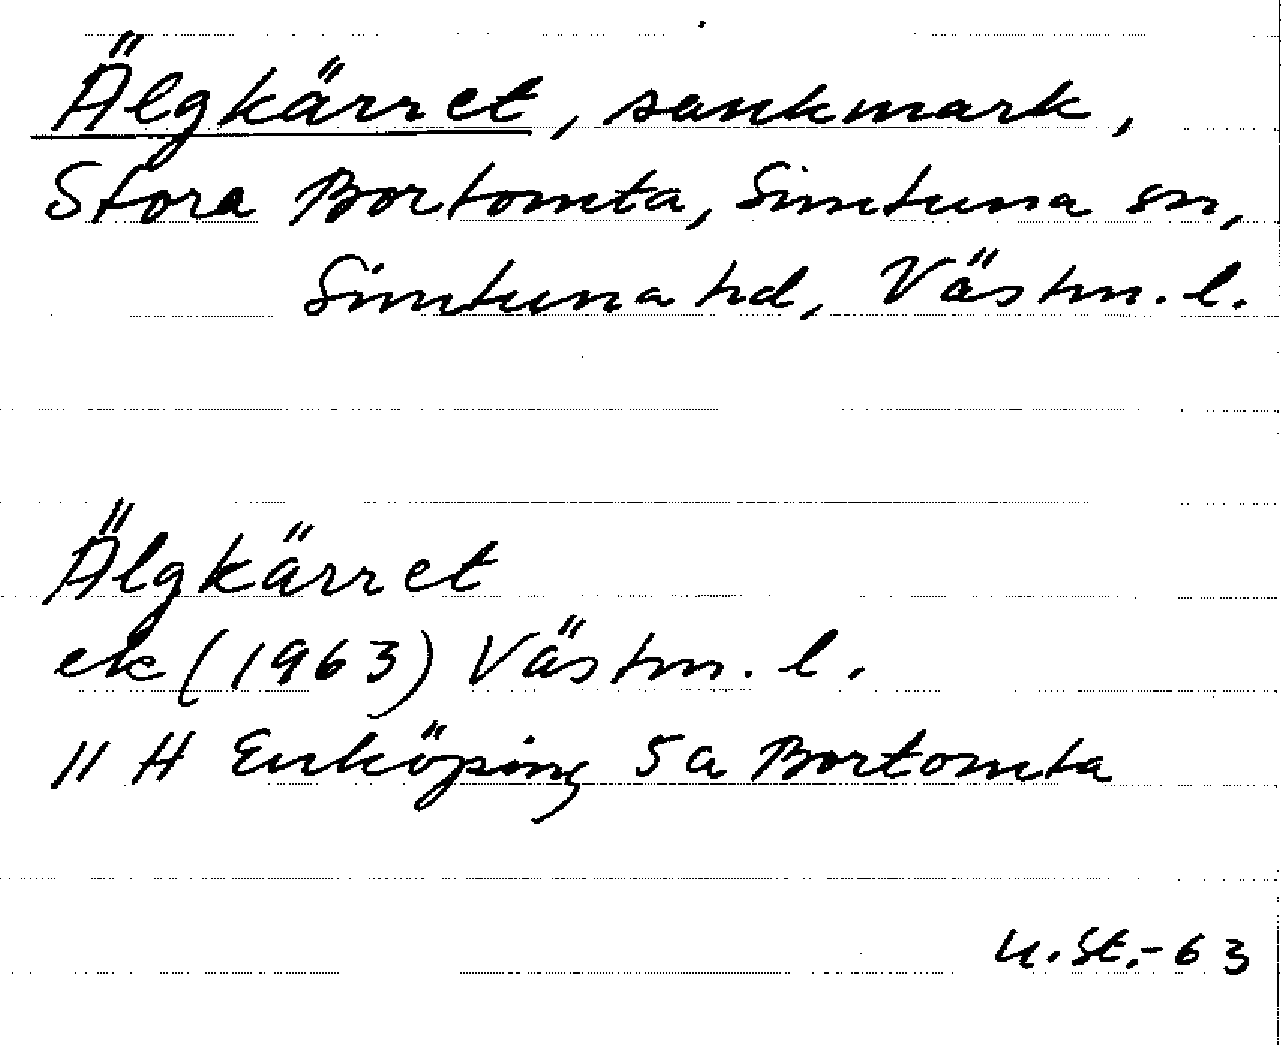 Älgkärret, sankmark,
Stora Bortomta, Simtuna sn,
Simtuna hd, Västm. l.
Älgkärret
ek (1963) Västm. l.
11 H Enköping 5a Bortomta
U. St. -63